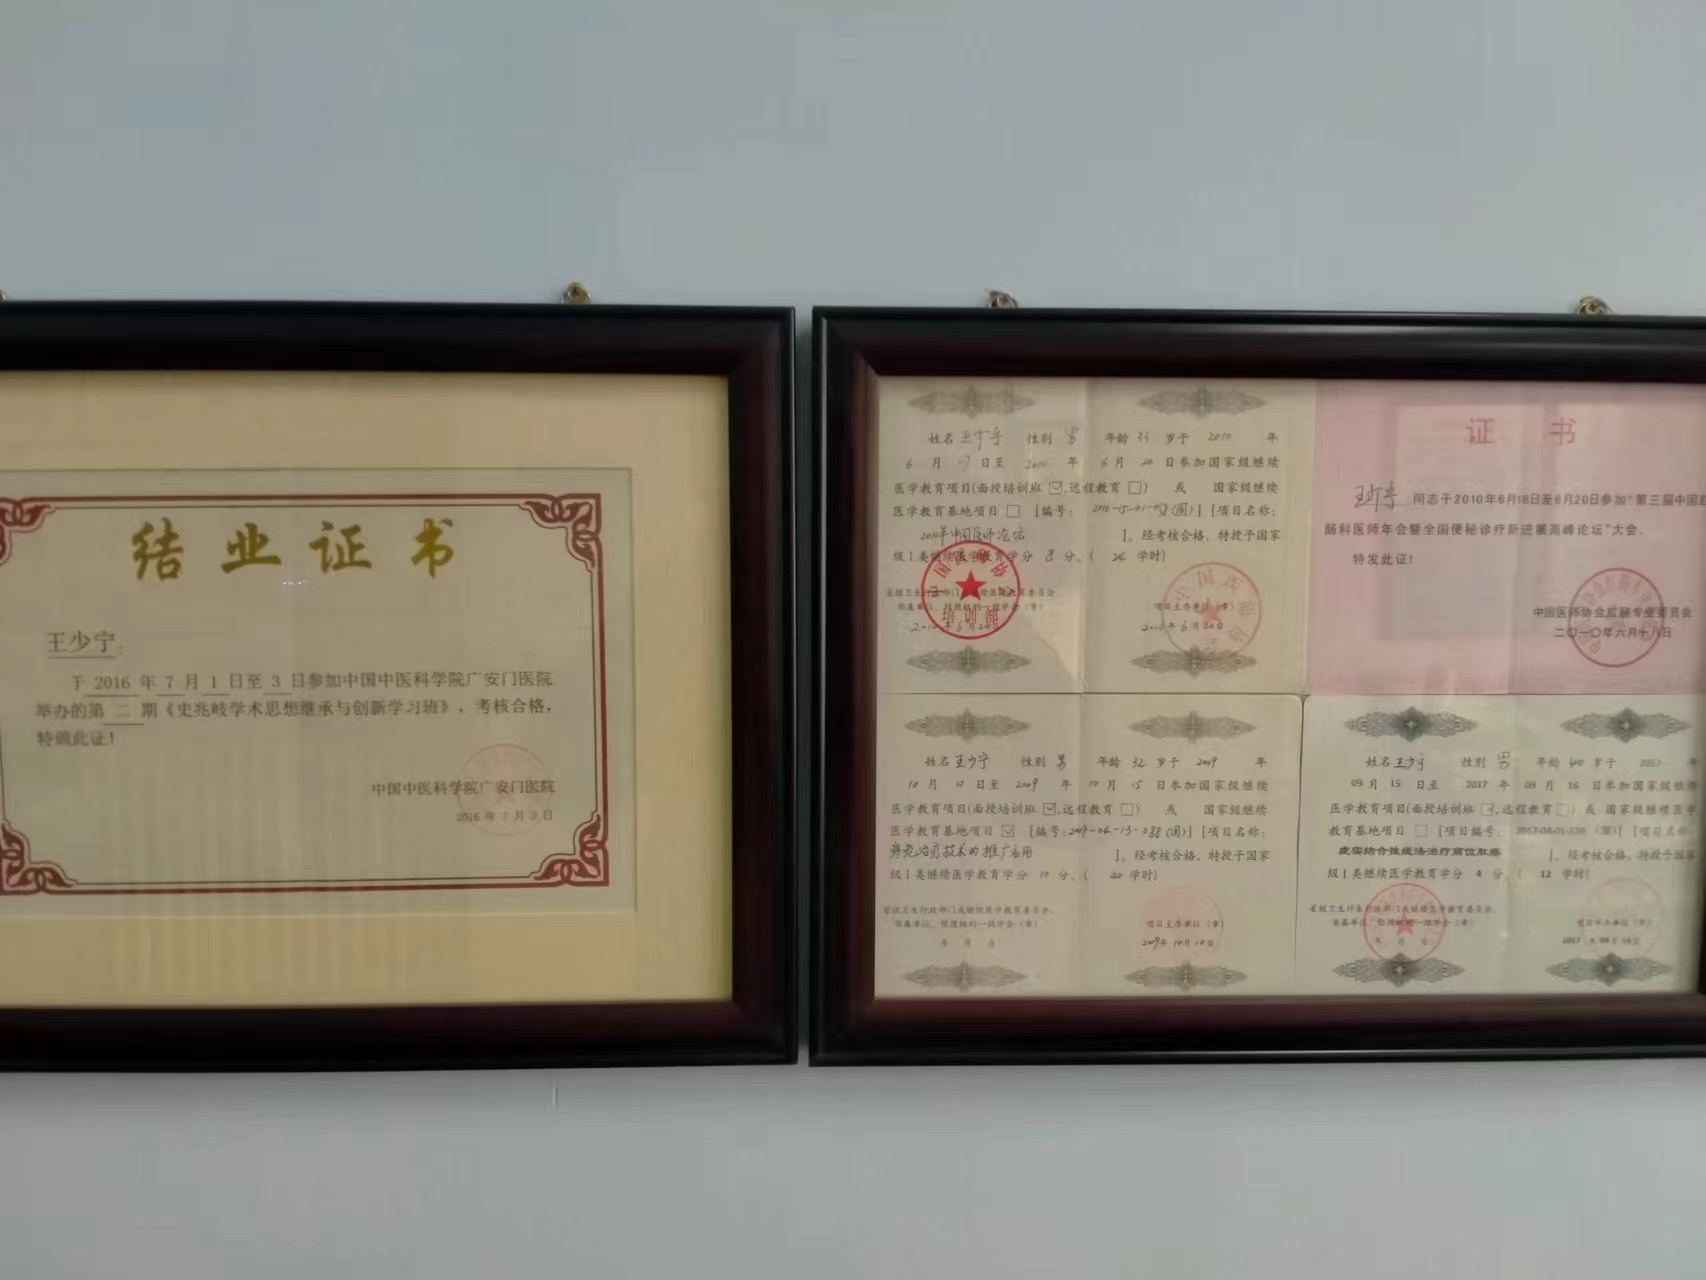 结业证书
王少宁:
于 2016 年 7 月 1 日至 3 日参加中国中医科学院广安门医院
举办的第 二 期《史兆岐学术思想继承与创新学习班》，考核合格，
特颁此证！
中国中医科学院广安门医院
2016 年 7 月 3 日
姓名 王少宁 性别 男 年龄 33 岁于 2010 年
6 月 日至 2010 年 6 月 20 日参加国家级继续
医学教育项目(面授培训班☑,远程教育□) 或 国家级继续
医学教育基地项目□ [编号: (国)] [项目名称:
2010年中国医师论坛 ]。经考核合格，特授予国家
级Ⅰ类继续医学教育学分 8 分。( 24 学时)
项目主办单位(章)
2010年6月20日
培训部
证书
王少宁 同志于2010年6月18日至6月20日参加“第三届中国
肠科医师年会暨全国便秘诊疗新进展高峰论坛”大会。
特发此证！
中国医师协会肛肠专业委员会
二〇一〇年六月十八日
姓名 王少宁 性别 男 年龄 32 岁于 2009 年
10 月 10 日至 2009 年 10 月 15 日参加国家级继续
医学教育项目(面授培训班☑,远程教育□) 或 国家级继续
医学教育基地项目☑ [编号:2009-04-13-088(国)] [项目名称:
痔疮治疗技术的推广应用 ]。经考核合格，特授予国家
级Ⅰ类继续医学教育学分 10 分。( 40 学时)
省级卫生行政部门或继续医学教育委员会、
部属单位、授授权的一级学会(章)
年 月 日
项目主办单位(章)
2009年10月10日
姓名 王少宁 性别 男 年龄 40 岁于 2017 年
09 月 15 日至 2017 年 09 月 16 日参加国家级继续
医学教育项目(面授培训班☑,远程教育□) 或 国家级继续医学
教育基地项目 □ [项目编号: (国)] [项目名称:
虚实结合挂线法治疗高位肛瘘 ]。经考核合格，特授予国家
级Ⅰ类继续医学教育学分 4 分。( 12 学时)
年 月 日
项目主办单位(章)